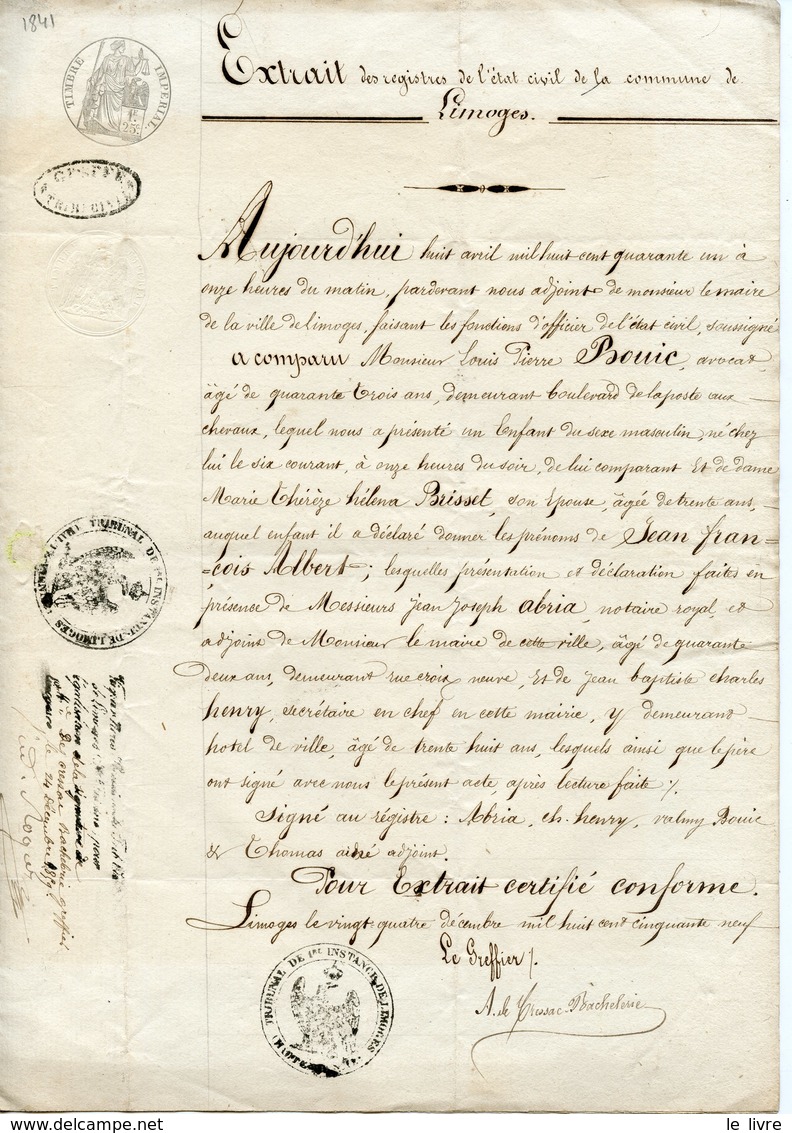 1841
TIMBRE IMPÉRIAL
1f 25c
GREFFE
TRIB. CIVIL
Extrait des registres de l'état civil de la commune de
Limoges.
Aujourd'hui huit avril mil huit cent quarante un à
onze heures du matin, pardevant nous adjoint de monsieur le maire
de la ville de limoges, faisant les fonctions d'officier de l'état civil, soussigné
a comparu Monsieur Louis Pierre Bouic, avocat,
âgé de quarante trois ans, demeurant boulevard de la poste aux
chevaux, lequel nous a présenté un Enfant du sexe masculin, né chez
lui le six courant, à onze heures du soir, de lui comparant Et de dame
Marie Thérèze hélena Brisset, son Epouse, âgée de trente ans,
auquel enfant il a déclaré donner les prénoms de Jean fran=
=çois Albert; lesquelles présentation et déclaration faites en
présence de Messieurs Jean Joseph abria, notaire royal, et
adjoint de Monsieur le maire de cette ville, âgé de quarante
deux ans, demeurant rue croix neuve, Et de Jean baptiste charles
henry, secrétaire en chef en cette mairie, y demeurant
hotel de ville, âgé de trente huit ans, lesquels ainsi que le père
ont signé avec nous le présent acte, après lecture faite /.
signé au régistre : Abria, ch. henry, valmy Bouic
& Thomas ainé adjoint.
Pour Extrait certifié conforme.
Limoges le vingt quatre décembre mil huit cent cinquante neuf
Le Greffier /.
A. de Cressac-Bachelerie
TRIBUNAL DE 1RE INSTANCE DE LIMOGES
TRIBUNAL DE 1RE INSTANCE DE LIMOGES
légalisation de la signature de
le 24 décembre 1859
le livre